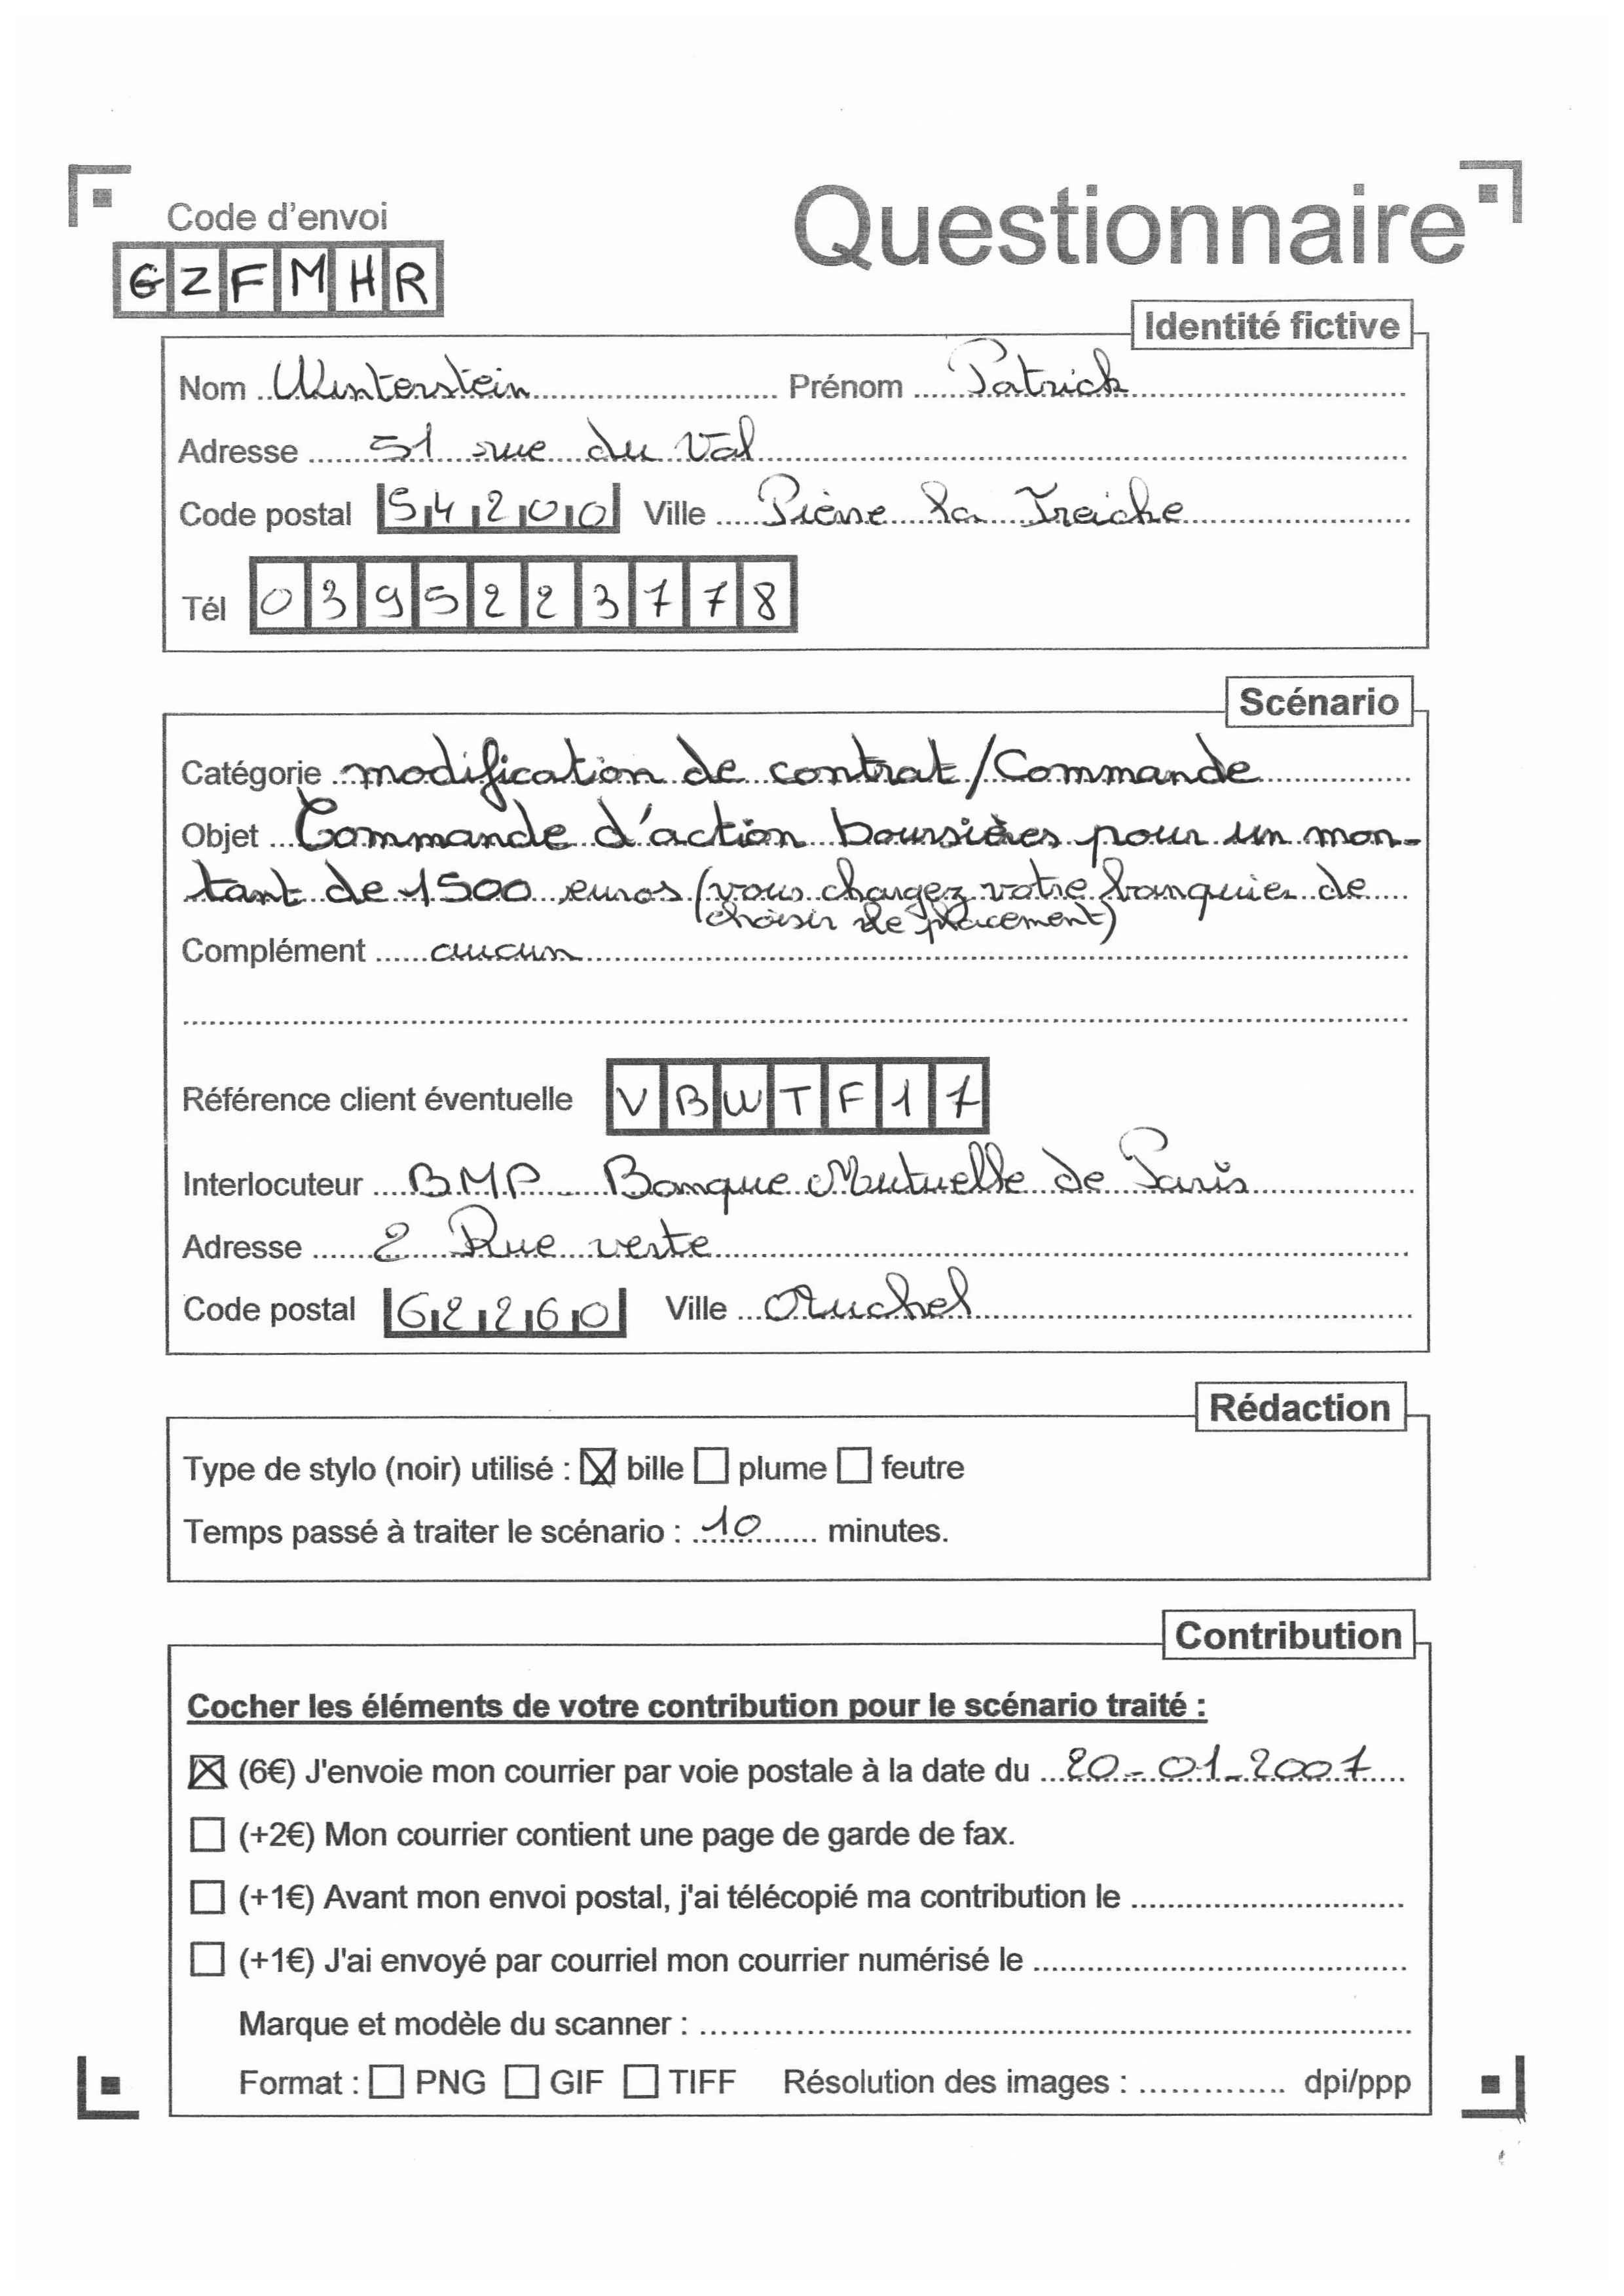 Code d'envoi
Questionnaire
GZFMHR
Identité fictive
Nom Winterstein Prénom Patrick
Adresse 51 rue du Val
Code postal 54200 Ville Pierre la Treiche
Tél 0395223778
Scénario
Catégorie modification de contrat/Commande
Objet Commande d'action boursières pour un mon-
tant de 1500 euros (vous chargez votre banquier de
choisir le placement)
Complément aucun
Référence client éventuelle VBWTF17
Interlocuteur BMP Banque Mutuelle de Paris
Adresse 2 Rue verte
Code postal 62260 Ville Auchel
Rédaction
Type de stylo (noir) utilisé : ☒ bille ☐ plume ☐ feutre
Temps passé à traiter le scénario : 10 minutes.
Contribution
Cocher les éléments de votre contribution pour le scénario traité :
☒ (6€) J'envoie mon courrier par voie postale à la date du 20-01-2007
☐ (+2€) Mon courrier contient une page de garde de fax.
☐ (+1€) Avant mon envoi postal, j'ai télécopié ma contribution le
☐ (+1€) J'ai envoyé par courriel mon courrier numérisé le
Marque et modèle du scanner :
Format : ☐ PNG ☐ GIF ☐ TIFF Résolution des images : dpi/ppp